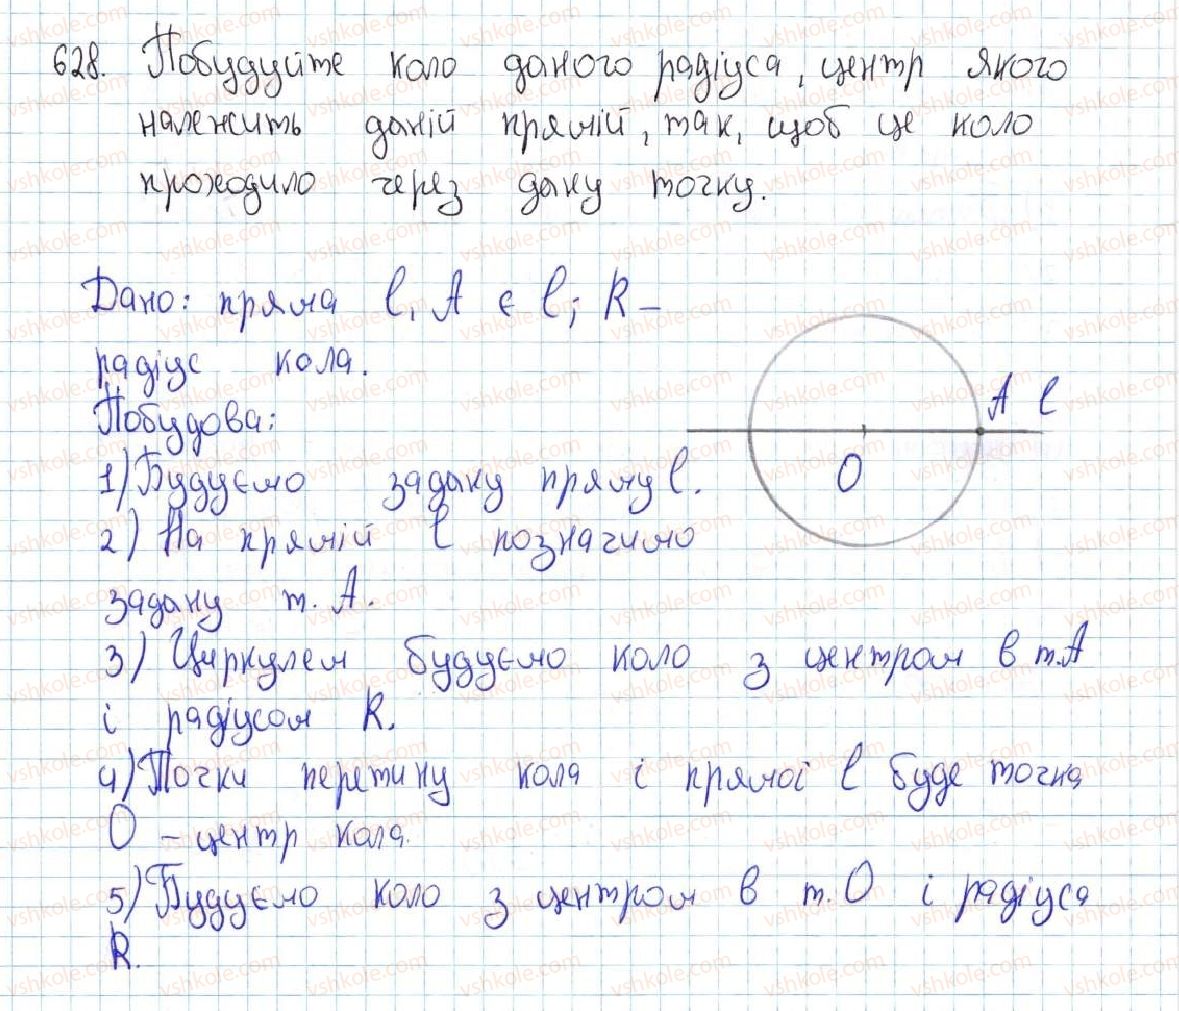 628. Побудуйте коло даного радіуса, центр якого
належить даній прямій, так, щоб це коло
проходило через дану точку.
Дано: пряма l, А є l; R –
радіус кола.
Побудова:
A l
O
1) Будуємо задану пряму l.
2) На прямій l позначимо
задану т. А.
3) Циркулем будуємо коло з центром в т.А
і радіусом R.
4) Точки перетину кола і прямої l буде точка
О – центр кола.
5) Будуємо коло з центром в т. О і радіуса
R.